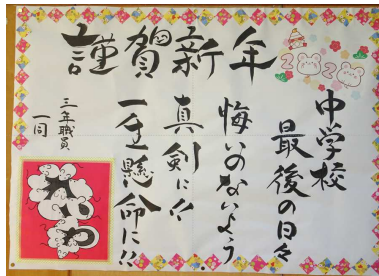 謹賀新年
2020
中学校
最後の日々
悔いのないよう
真剣に!!
一生懸命に!!
三年職員
一同